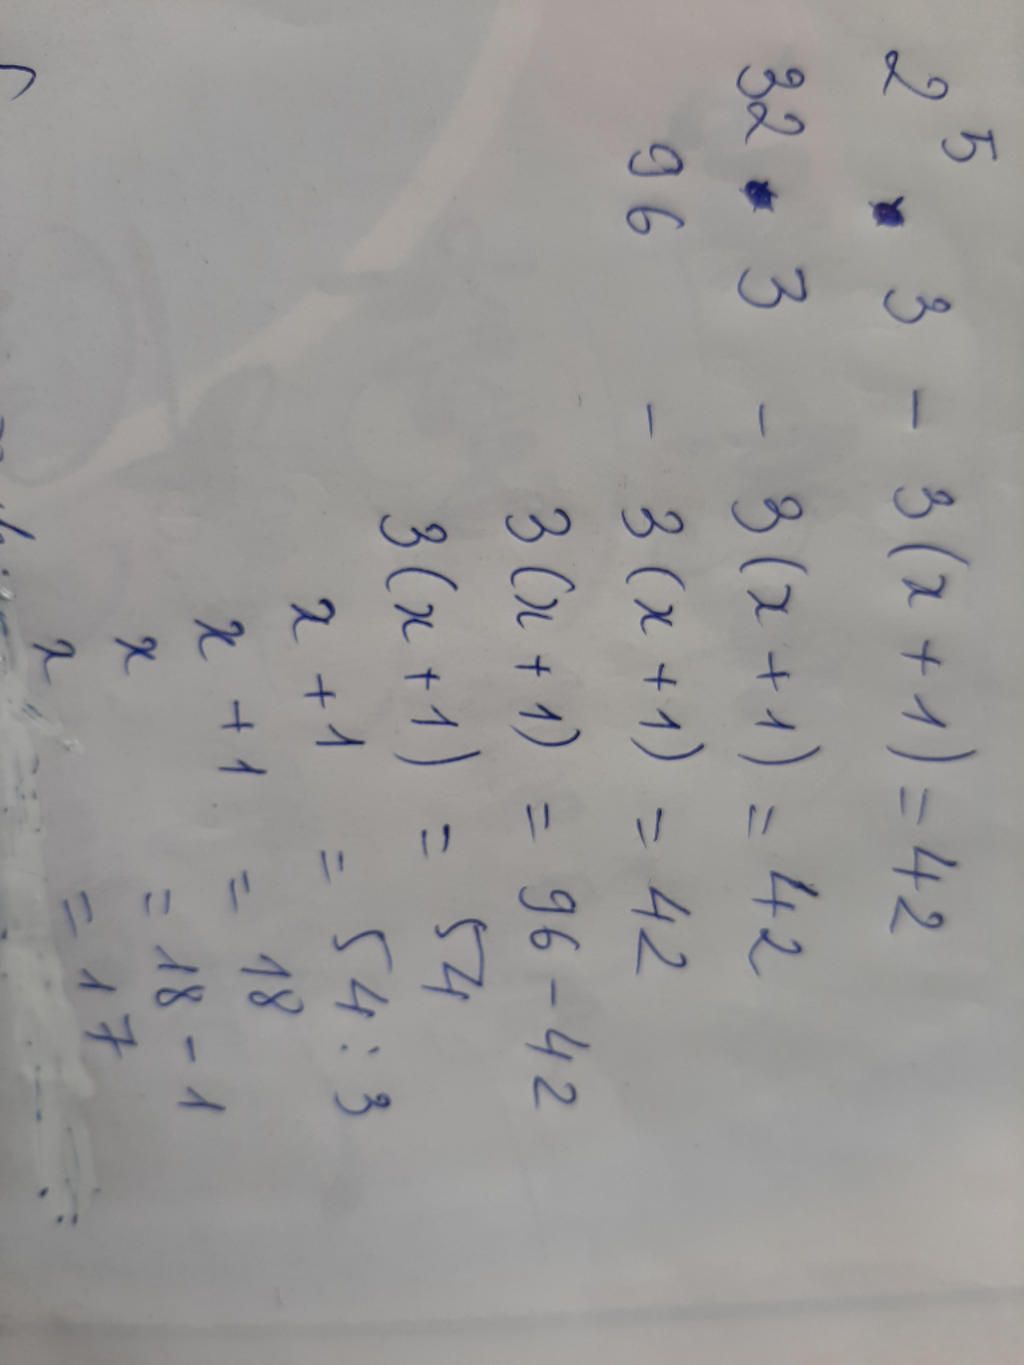 2⁵ • 3 - 3(x + 1) = 42
32 • 3 - 3(x + 1) = 42
96 - 3(x + 1) = 42
3(x + 1) = 96 - 42
3(x + 1) = 54
x + 1 = 54 : 3
x + 1 = 18
x = 18 - 1
x = 17